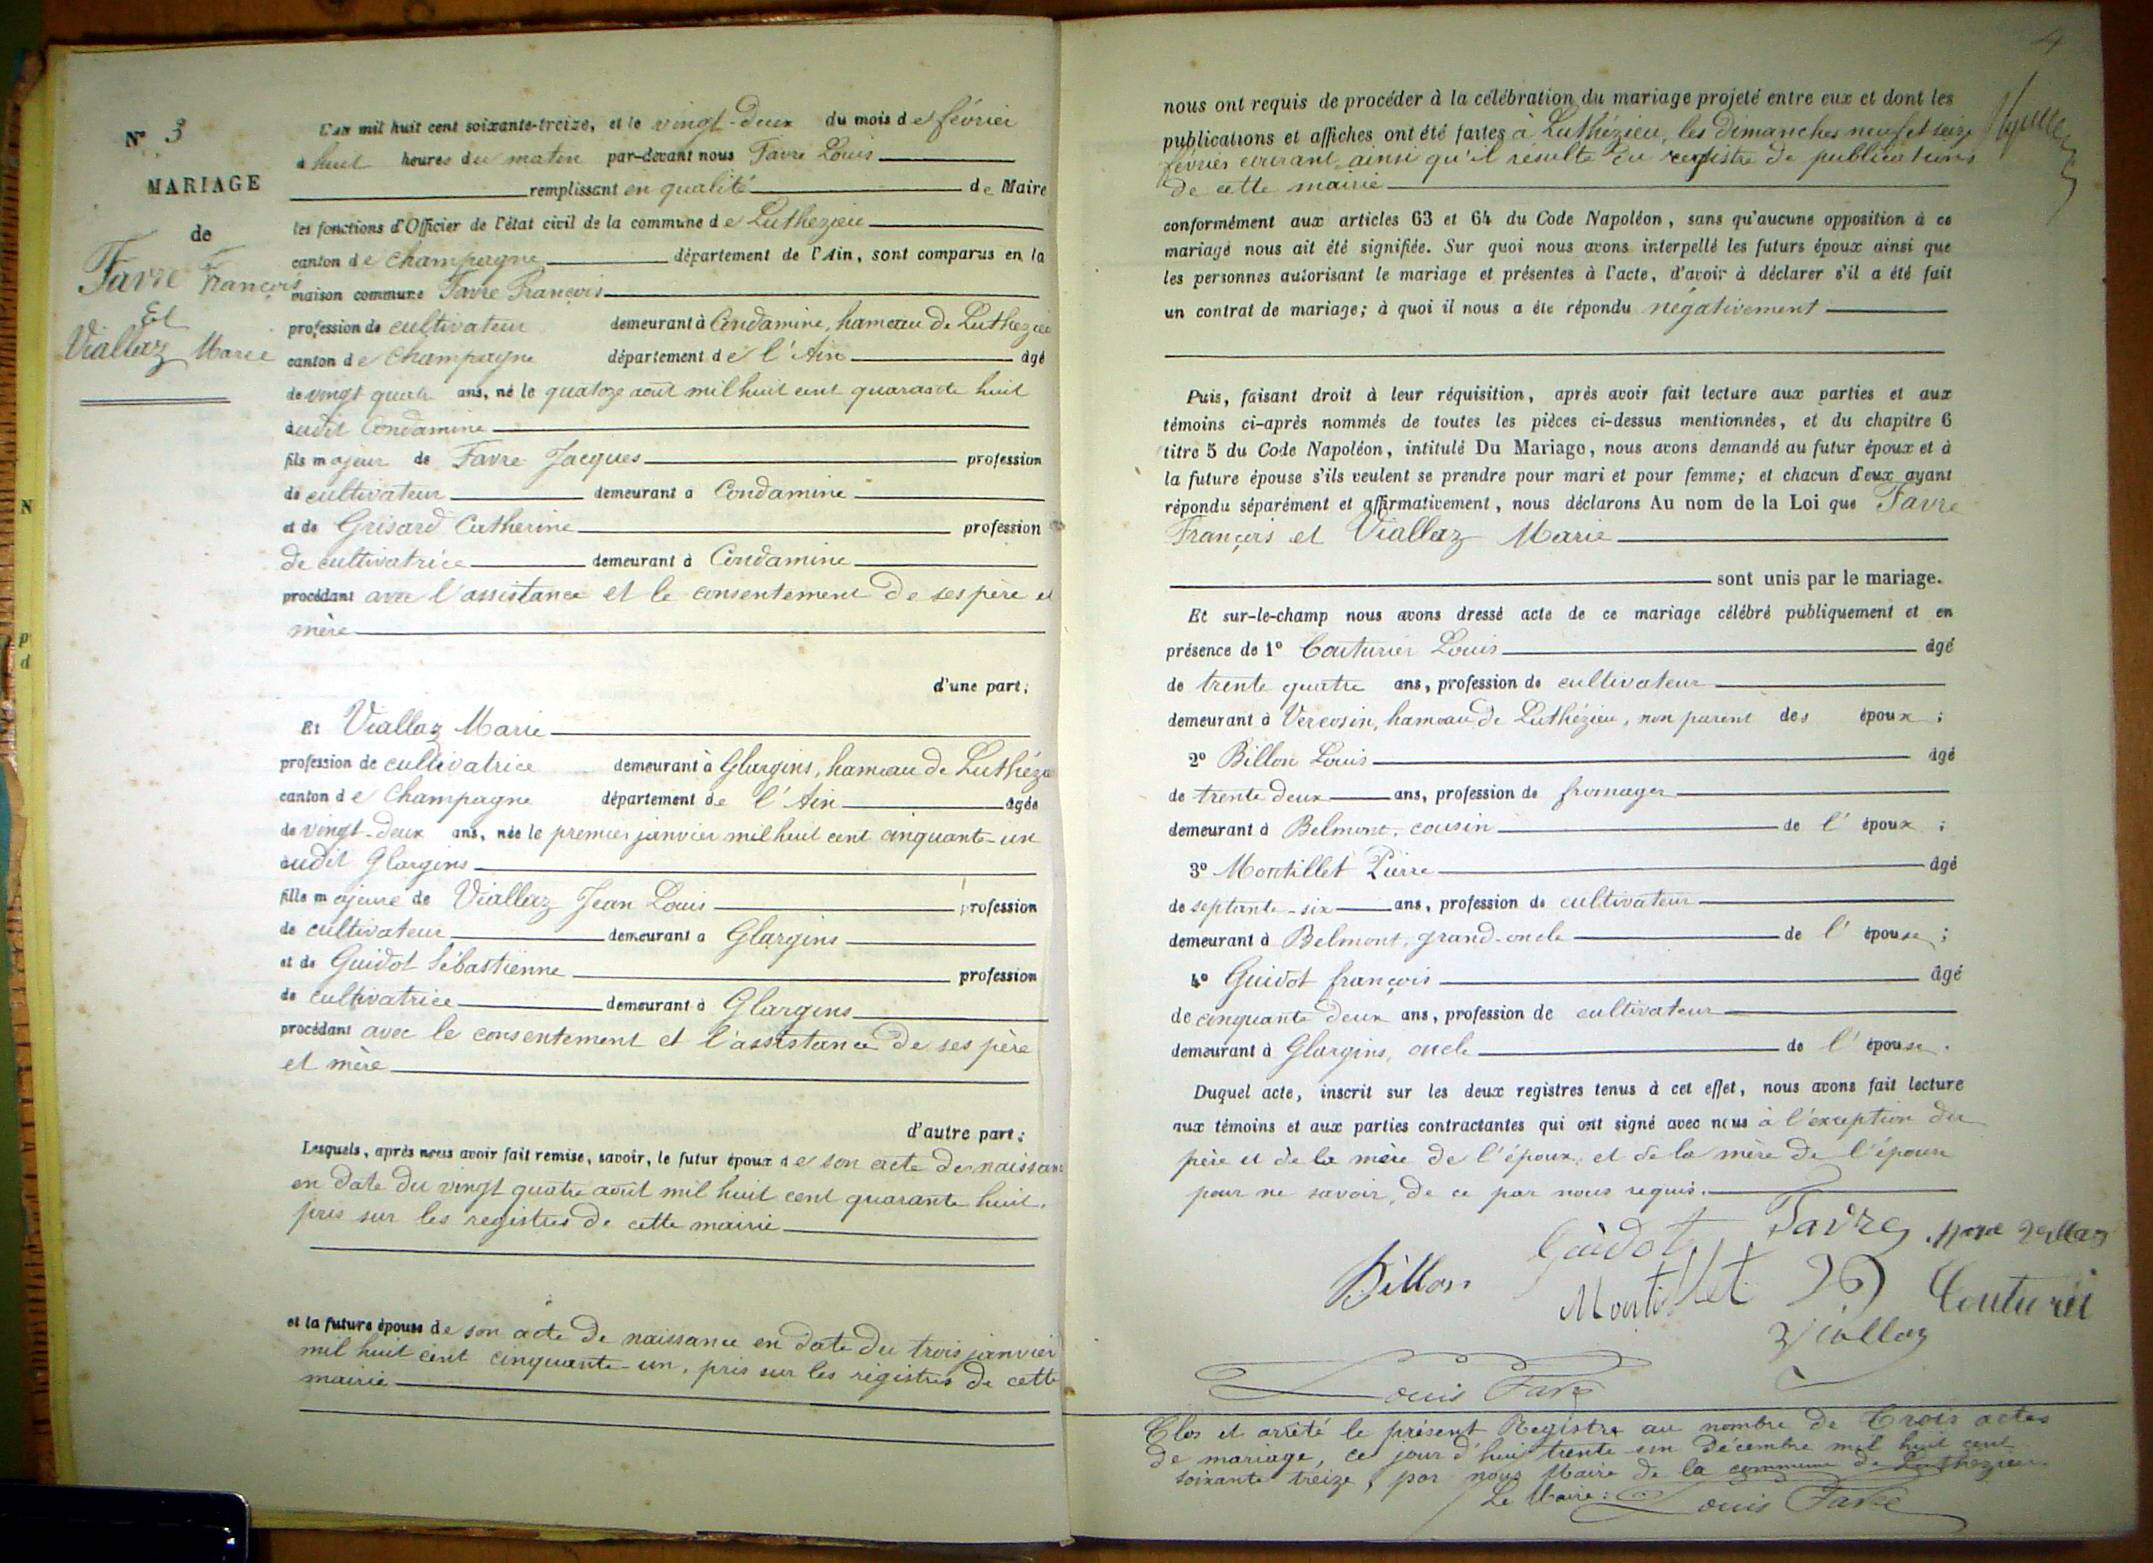 N° 3
MARIAGE
de
Favre François
Et
Viallaz Marie
L'an mil huit cent soixante-treize, et le vingt-deux du mois de février
à huit heures du matin par-devant nous Favre Louis
remplissant en qualité de Maire
les fonctions d'Officier de l'état civil de la commune de Luthézieu
canton de Champagne département de l'Ain, sont comparus en la
maison commune Favre François
profession de cultivateur demeurant à Condamine, hameau de Luthézieu
canton de Champagne département de l'Ain âgé
de vingt quatre ans, né le quatorze août mil huit cent quarante huit
audit Condamine
fils majeur de Favre Jacques profession
de cultivateur demeurant à Condamine
et de Grisard Catherine profession
de cultivatrice demeurant à Condamine
procédant avec l'assistance et le consentement de ses père et
mère
d'une part;
Et Viallaz Marie
profession de cultivatrice demeurant à Glargins, hameau de Luthézieu
canton de Champagne département de l'Ain âgée
de vingt-deux ans, née le premier janvier mil huit cent cinquante-un
audit Glargins
fille majeure de Viallaz Jean Louis profession
de cultivateur demeurant à Glargins
et de Guidot Sébastienne profession
de cultivatrice demeurant à Glargins
procédant avec le consentement et l'assistance de ses père
et mère
d'autre part;
Lesquels, après nous avoir fait remise, savoir, le futur époux de son acte de naissance
en date du vingt quatre août mil huit cent quarante huit,
pris sur les registres de cette mairie
et la future épouse de son acte de naissance en date du trois janvier
mil huit cent cinquante-un, pris sur les registres de cette
mairie
4
nous ont requis de procéder à la célébration du mariage projeté entre eux et dont les
publications et affiches ont été faites à Luthézieu, les dimanches neuf et seize
février courant ainsi qu'il résulte du registre de publications
de cette mairie
conformément aux articles 63 et 64 du Code Napoléon, sans qu'aucune opposition à ce
mariage nous ait été signifiée. Sur quoi nous avons interpellé les futurs époux ainsi que
les personnes autorisant le mariage et présentes à l'acte, d'avoir à déclarer s'il a été fait
un contrat de mariage; à quoi il nous a été répondu négativement
Puis, faisant droit à leur réquisition, après avoir fait lecture aux parties et aux
témoins ci-après nommés de toutes les pièces ci-dessus mentionnées, et du chapitre 6
titre 5 du Code Napoléon, intitulé Du Mariage, nous avons demandé au futur époux et à
la future épouse s'ils veulent se prendre pour mari et pour femme; et chacun d'eux ayant
répondu séparément et affirmativement, nous déclarons Au nom de la Loi que Favre
François et Viallaz Marie
sont unis par le mariage.
Et sur-le-champ nous avons dressé acte de ce mariage célébré publiquement et en
présence de 1° Couturier Louis âgé
de trente quatre ans, profession de cultivateur
demeurant à Vercosin, hameau de Luthézieu, non parent des époux;
2° Billon Louis âgé
de trente deux ans, profession de fromager
demeurant à Belmont, cousin de l'époux;
3° Montillet Pierre âgé
de septante-six ans, profession de cultivateur
demeurant à Belmont, grand-oncle de l'épouse;
4° Guidot françois âgé
de cinquante deux ans, profession de cultivateur
demeurant à Glargins, oncle de l'épouse.
Duquel acte, inscrit sur les deux registres tenus à cet effet, nous avons fait lecture
aux témoins et aux parties contractantes qui ont signé avec nous à l'exception du
père et de la mère de l'époux, et de la mère de l'épouse
pour ne savoir, de ce par nous requis.
Guidot Favre Marie Viallaz
Billon Montillet Couturier
Viallaz
Louis Favre
Clos et arrêté le présent Registre au nombre de Trois actes
de mariage, ce jour d'hui trente-un Décembre mil huit cent
soixante treize, par nous Maire de la commune de Luthézieu.
Le Maire: Louis Favre